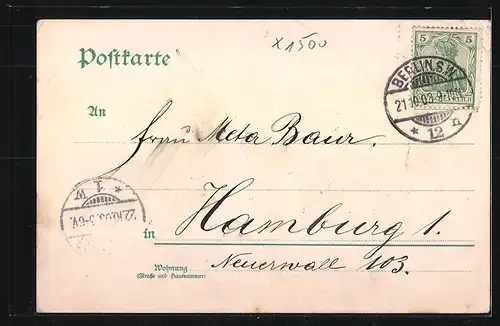 x 1500
Postkarte
5 5
BERLIN S.W.
21.10.03.9-10V.
* 12 n
An
Frau Meta Baur.
* 1 W
22.10.03. 5-6V.
in Hamburg 1.
Neuerwall 103.
Wohnung
(Straße und Hausnummer)